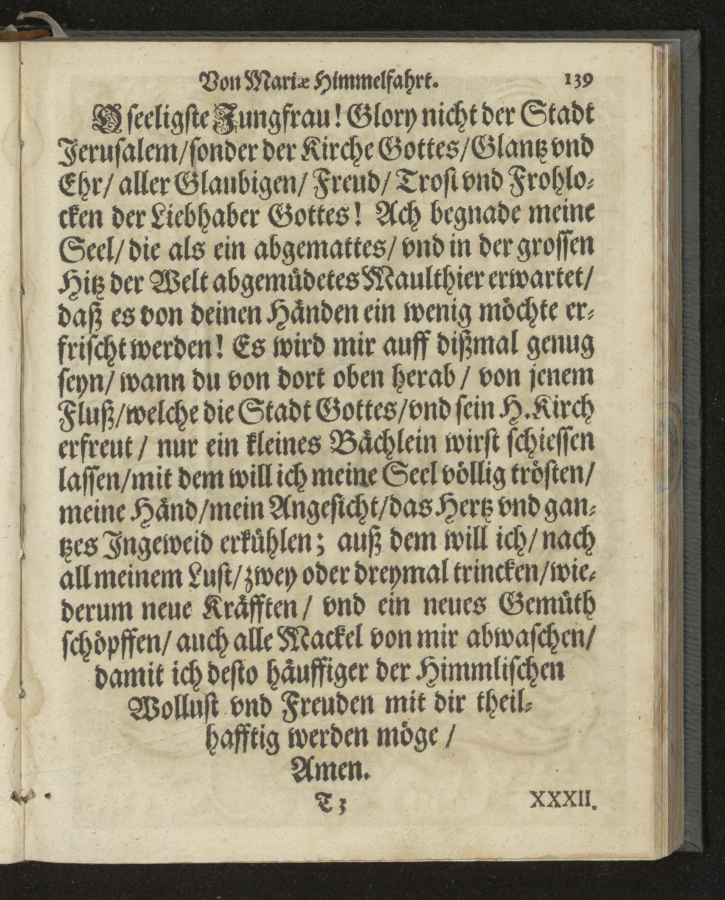 Von Mariæ Himmelfahrt. 139
O seeligste Jungfrau! Glory nicht der Stadt
Jerusalem/sonder der Kirche Gottes/Glantz vnd
Ehr/ aller Glaubigen/ Freud/ Trost vnd Frohlo-
cken der Liebhaber Gottes! Ach begnade meine
Seel/ die als ein abgemattes/ vnd in der grossen
Hitz der Welt abgemüdetes Maulthier erwartet/
daß es von deinen Händen ein wenig möchte er-
frischt werden! Es wird mir auff dißmal genug
seyn/ wann du von dort oben herab / von jenem
Fluß/welche die Stadt Gottes/vnd sein H. Kirch
erfreut / nur ein kleines Bächlein wirst schiessen
lassen/mit dem will ich meine Seel völlig trösten/
meine Händ/mein Angesicht/das Hertz vnd gan-
tzes Ingeweid erkühlen; auß dem will ich/ nach
all meinem Lust/ zwey oder dreymal trincken/wie-
derum neue Kräfften / vnd ein neues Gemüth
schöpffen/ auch alle Mackel von mir abwaschen/
damit ich desto häuffiger der Himmlischen
Wollust vnd Freuden mit dir theil-
hafftig werden möge /
Amen.
T 3 XXXII.